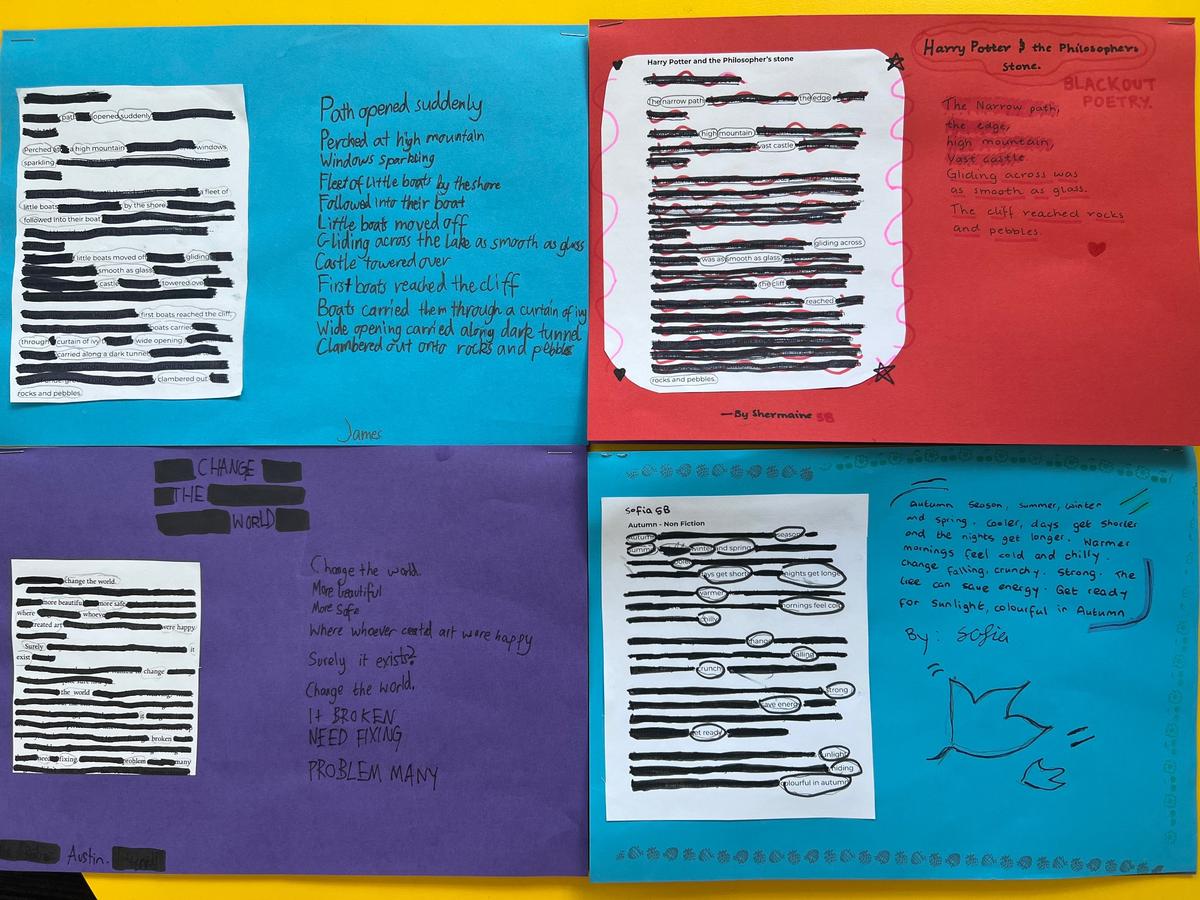 path opened suddenly
Perched a high mountain windows,
sparkling
a fleet of
little boats by the shore
followed into their boat
little boats moved off gliding
smooth as glass
castle towered over
first boats reached the cliff;
boats carried
through curtain of ivy wide opening
carried along a dark tunnel
clambered out
rocks and pebbles.
Path opened suddenly
Perched at high mountain
Windows sparkling
Fleet of little boats by the shore
Followed into their boat
Little boats moved off
Gliding across the lake as smooth as glass
Castle towered over
First boats reached the cliff
Boats carried them through a curtain of ivy
Wide opening carried along dark tunnel
Clambered out onto rocks and pebbles
James
Harry Potter and the Philosopher's stone
The narrow path the edge
high mountain
vast castle
gliding across
was as smooth as glass.
the cliff
reached
rocks and pebbles.
Harry Potter & the Philosophers
Stone.
BLACKOUT
POETRY.
The Narrow path,
the edge,
high mountain,
Vast castle
Gliding across was
as smooth as glass.
The cliff reached rocks
and pebbles.
—By Shermaine 5B
CHANGE
THE
WORLD
change the world.
more beautiful more safe
where whoever
created art were happy
Surely it
exist
change
the world
is
broken
need fixing problem many
Change the world.
More beautiful
More Safe
Where whoever creatd art were happy
Surely it exists?
Change the world.
It BROKEN
NEED FIXING
PROBLEM MANY
Austin.
Sofia 5B
Autumn - Non Fiction
Autumn season
summ winter and spring
cooler
days get short nights get longe
warmer
mornings feel cold
chilly
change
falling
crunch
strong
save energ
get ready
sunlight
hiding
colourful in autumn
Autumn Season, summer, winter
and spring. Cooler, days get shorter
and the nights get longer. Warmer
mornings feel cold and chilly.
change falling, crunchy. Strong. The
tree can save energy. Get ready
for Sunlight, colourful in Autumn
By: Sofia